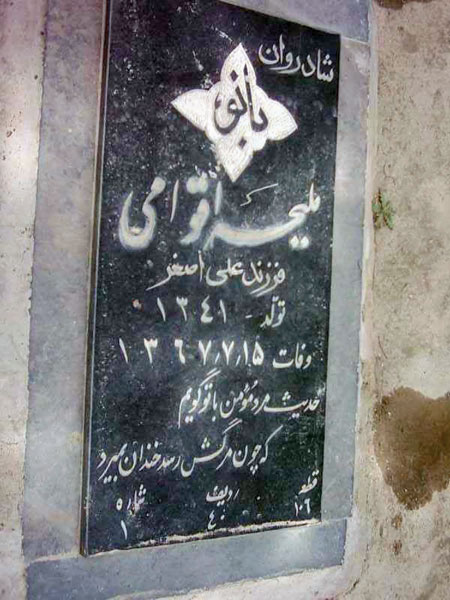 شادروان
بانو
ملیحه اقوامی
فرزند علی اصغر
تولد - ۱۳۴۱
وفات ۱۳۶۷٫۷٫۱۵
حدیث مرد مؤمن با تو گویم
که چون مرگش رسد خندان بمیرد
قطعه ردیف شماره
۱۰۶ ۴۰ ۵۱